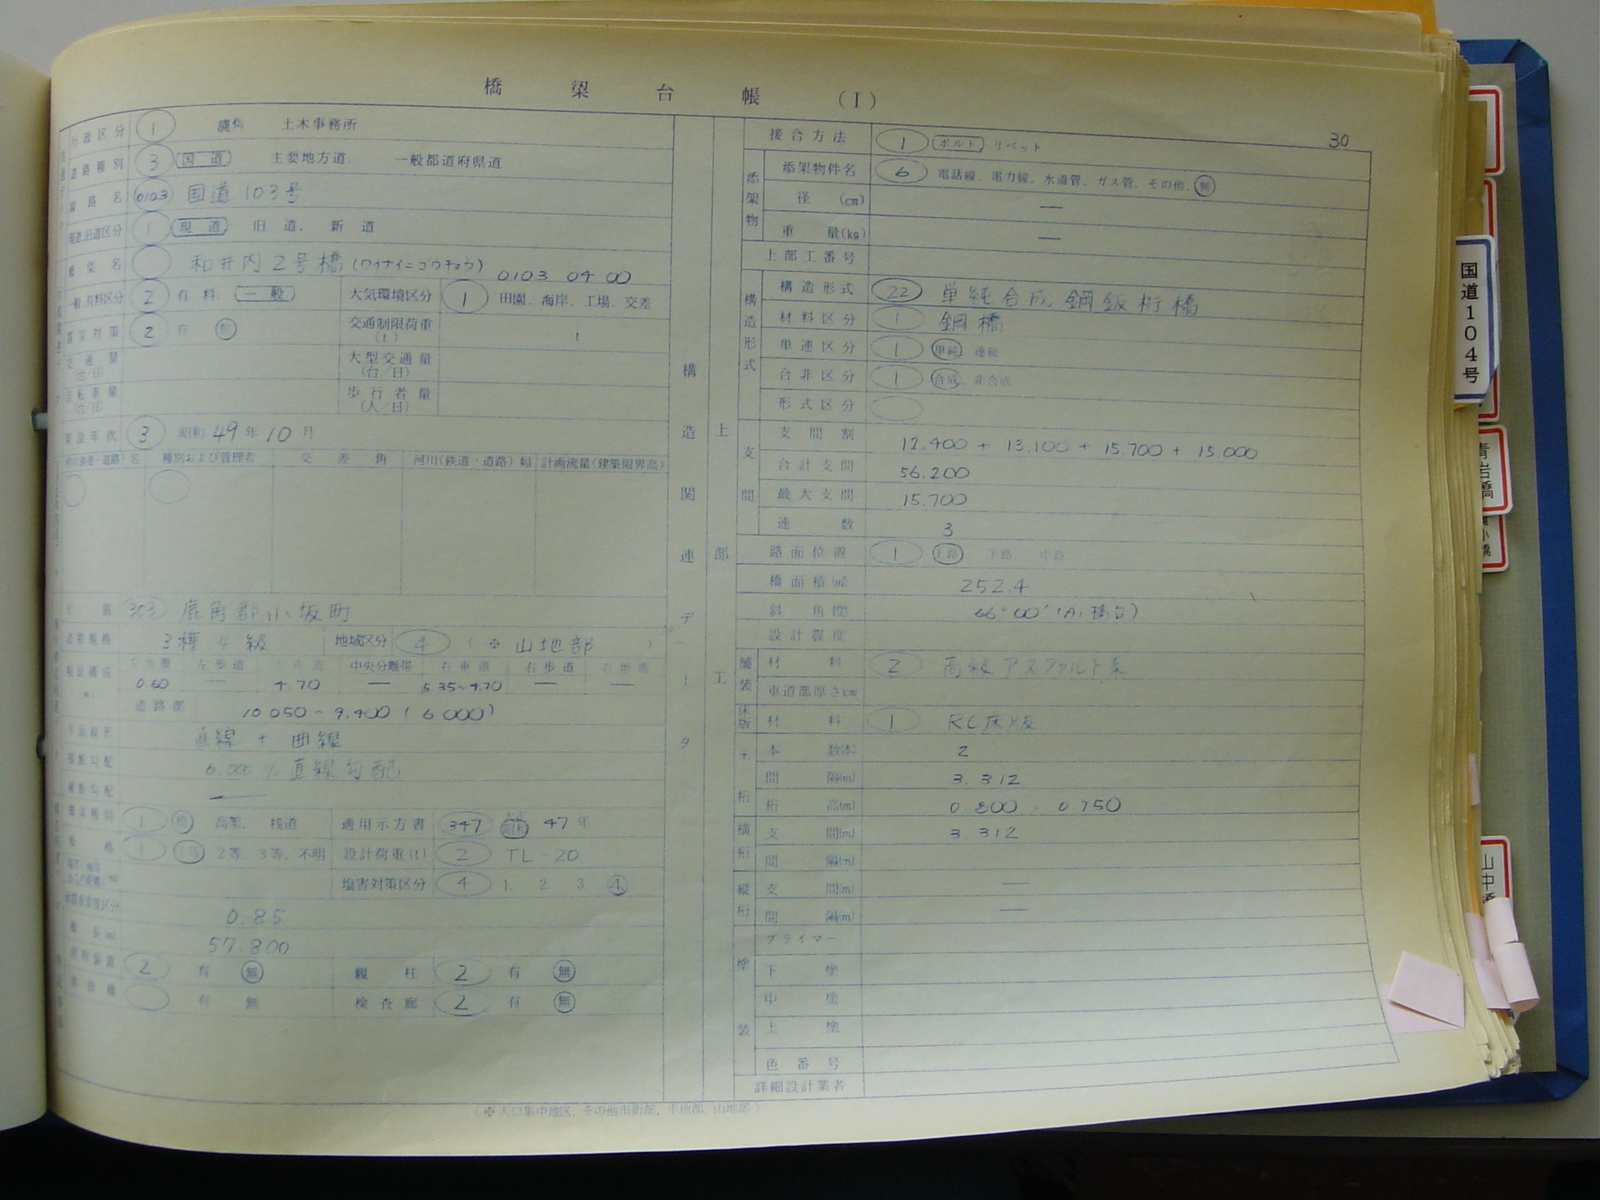 橋梁台帳 (I)
30
行政区分 1 鹿角 土木事務所
道路種別 3 国道 主要地方道、 一般都道府県道
路線名 0103 国道103号
現道旧道区分 1 現道 旧道、 新道
橋梁名 和井内2号橋 (ワイナイニゴウキョウ) 0103 04 00
一般、有料区分 2 有料、 一般 大気環境区分 1 田園、海岸、工場、交差
震災対策 2 有 無 交通制限荷重(t) t
交通量(台/日) 大型交通量(台/日)
自転車量(台/日) 歩行者量(人/日)
架設年次 3 昭和 49年 10月
河川(鉄道・道路)名 種別および管理者 交差角 河川(鉄道・道路)幅 計画流量(建築限界高)
303 鹿角郡小坂町
道路規格 3種4級 地域区分 4 (※ 山地部 )
左歩道 中央分離帯 右車道 右歩道 右地覆
0.60 — 4.70 — 5.35~4.70 — —
道路部 10.050~9.400 (6.000)
直線 + 曲線
6.000% 直線勾配
橋梁種別 1 橋 高架、 桟道 適用示方書 347 昭和 47年
橋格 1 1等 2等、3等、不明 設計荷重(t) 2 TL-20
塩害対策区分 4 1. 2. 3 4.
0.85
橋長(m) 57.800
2 有 無 親柱 2 有 無
有 無 検査廊 2 有 無
(※人口集中地区、その他市街部、平地部、山地部)
構造関連データ
上部工
接合方法 1 ボルト リベット
添架物
添架物件名 6 電話線、電力線、水道管、ガス管、その他、無
径 (cm) —
重量(kg) —
上部工番号
構造形式
構造形式 22 単純合成鋼鈑桁橋
材料区分 1 鋼橋
単連区分 1 単純 連続
合非区分 1 合成、非合成
形式区分
支間
支間割 12.400 + 13.100 + 15.700 + 15.000
合計支間 56.200
最大支間 15.700
連数 3
路面位置 1 上路 下路、中路
橋面積(㎡) 252.4
斜角(度) 66°00' (A1橋台)
設計震度
舗装 材料 2 高級アスファルト系
車道部厚さcm
床版 材料 1 RC床版
主桁 本数(本) 2
間隔(m) 3.312
桁高(m) 0.800 . 0.750
横桁 支間(m) 3.312
間隔(m)
縦桁 支間(m) —
間隔(m) —
塗装
プライマー
下塗
中塗
上塗
色番号
詳細設計業者
国道104号
青岩橋
小橋
山中橋